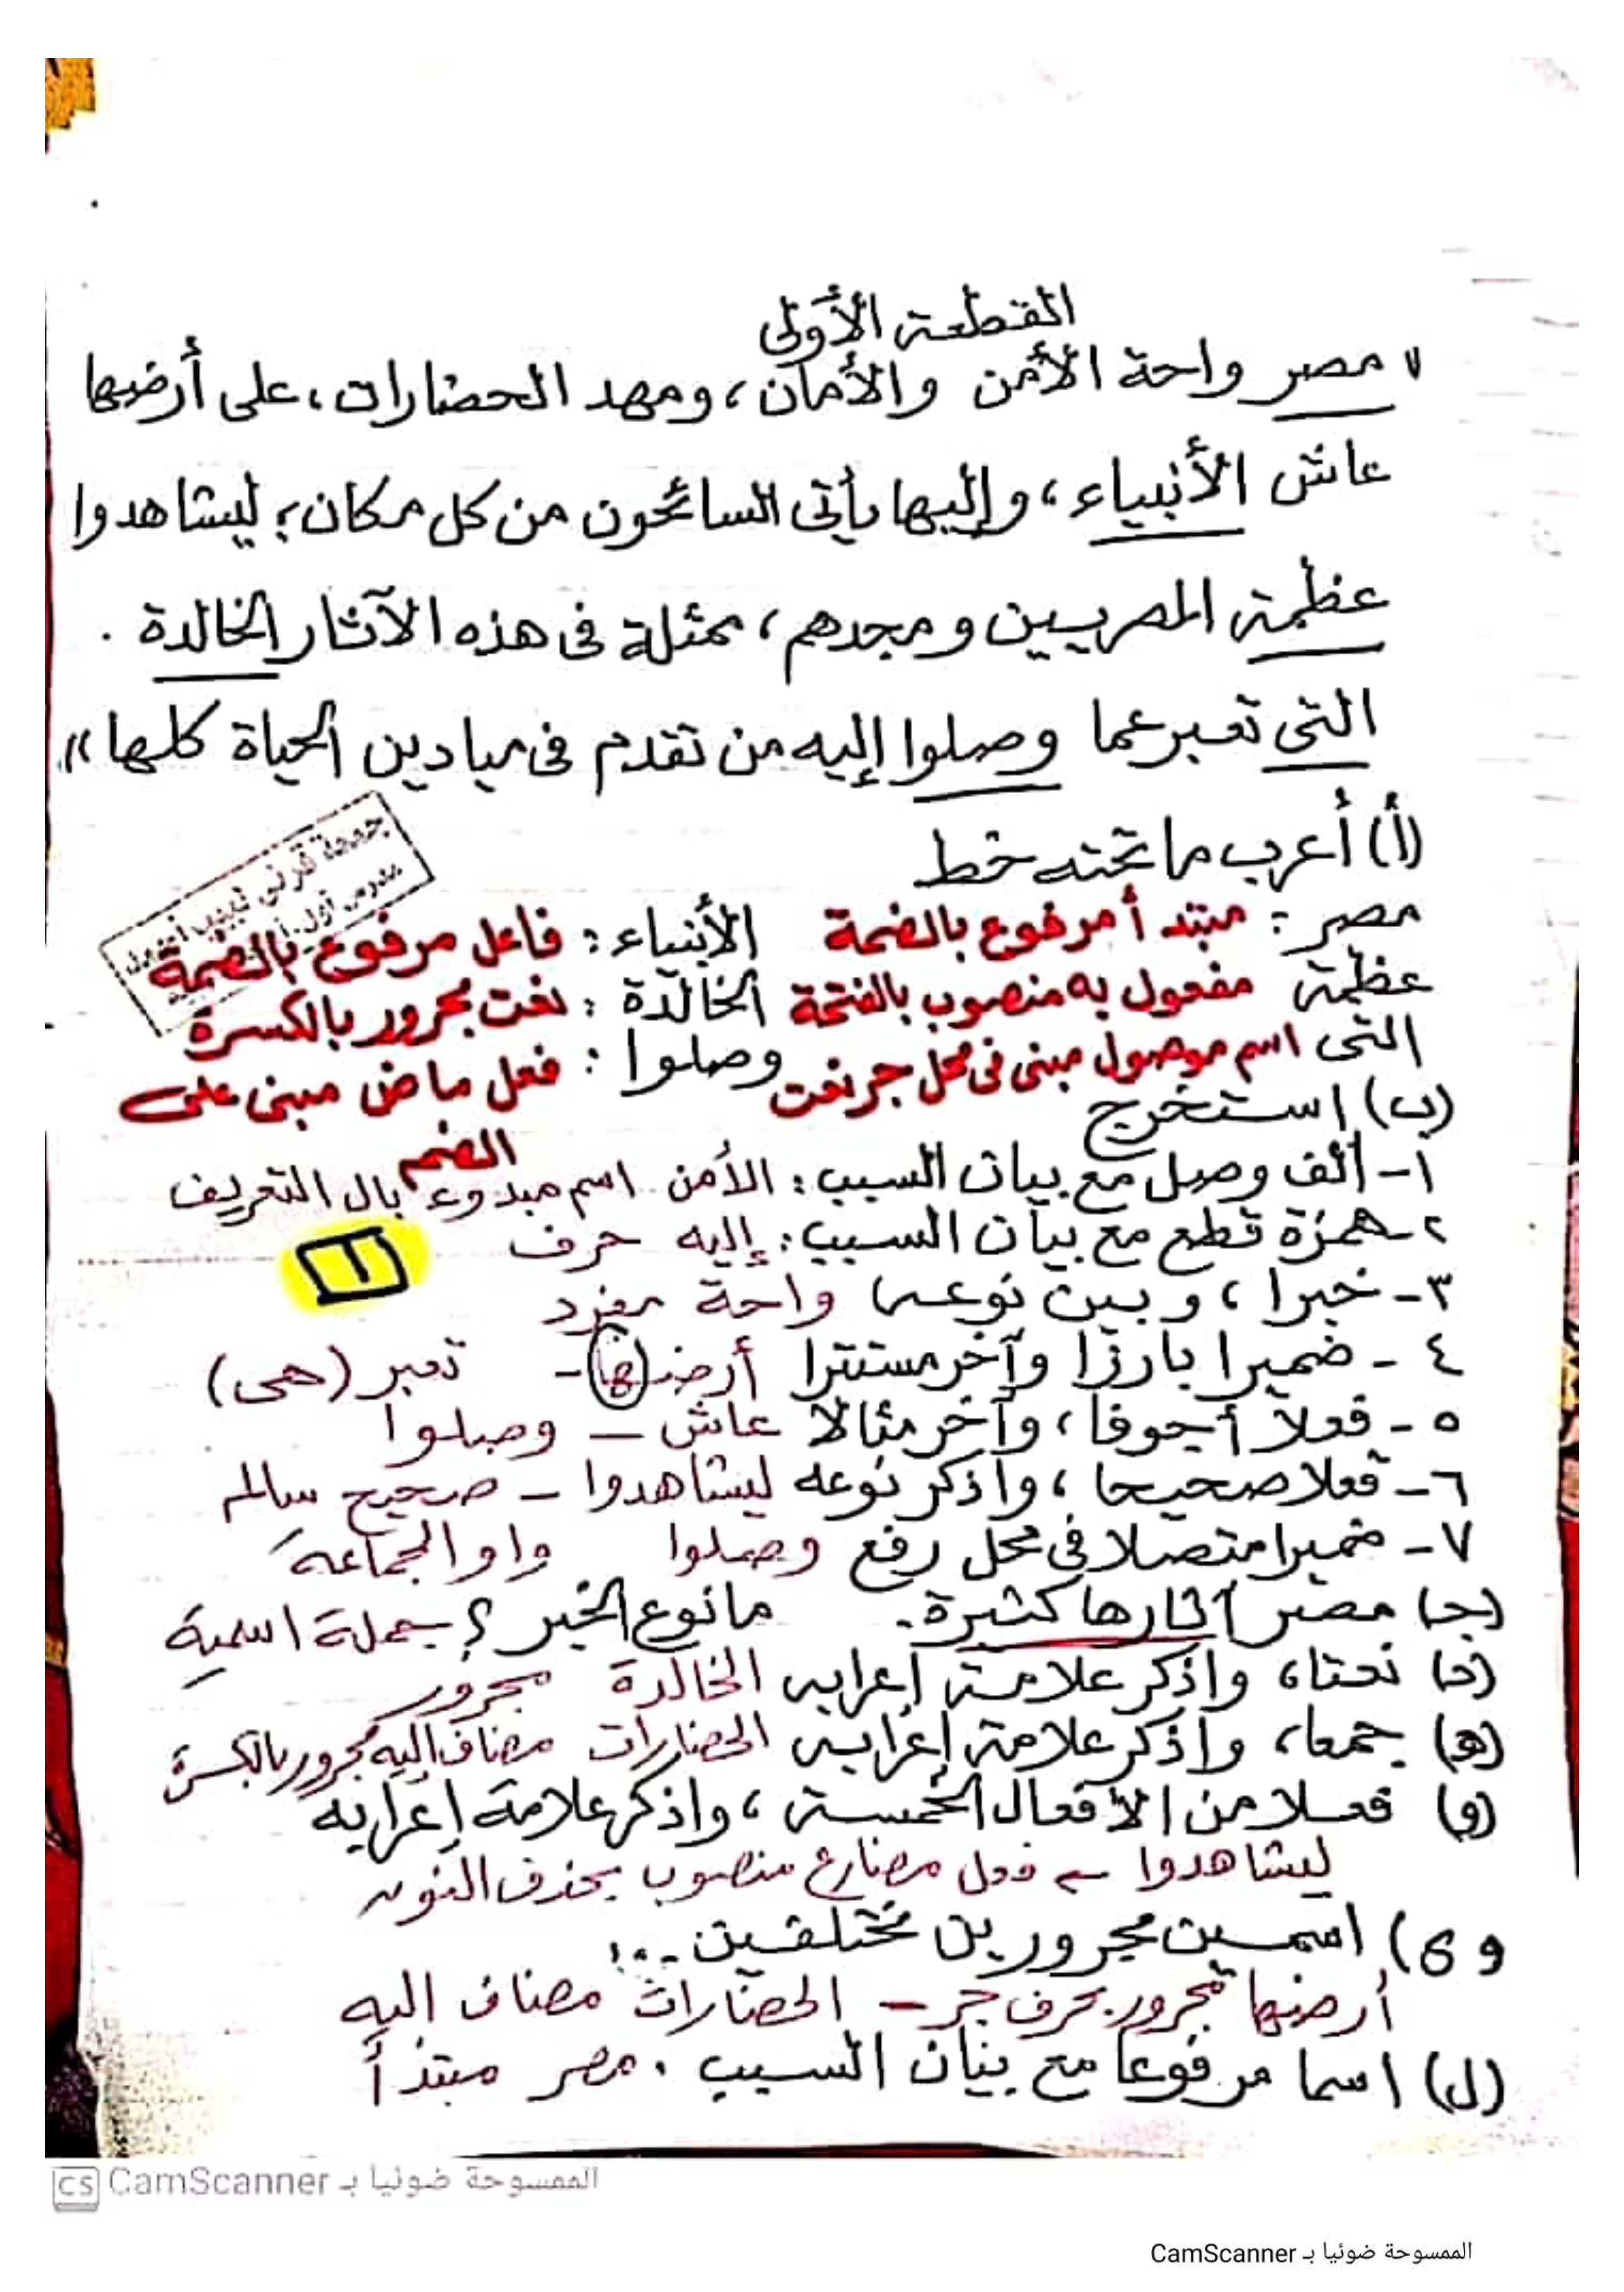 القطعة الأولى
" مصر واحة الأمن والأمان، ومهد الحضارات، على أرضها
عاش الأنبياء، وإليها يأتى السائحون من كل مكان؛ ليشاهدوا
عظمة المصريين ومجدهم، ممثلة فى هذه الآثار الخالدة .
التى تعبر عما وصلوا إليه من تقدم فى ميادين الحياة كلها"
(أ) أعرب ما تحته خط
مصر : مبتدأ مرفوع بالضمة الأنبياء : فاعل مرفوع بالضمة
عظمة مفعول به منصوب بالفتحة الخالدة : نعت مجرور بالكسرة
التى اسم موصول مبنى فى محل جر نعت وصلوا : فعل ماض مبنى على
الضم
(ب) استخرج
١- ألف وصل مع بيان السبب : الأمن اسم مبدوء بال التعريف
٢- همزة قطع مع بيان السبب : إليه حرف
٣- خبرا، وبين نوعه) واحة مفرد
١
٤ - ضميرا بارزا وآخر مستترا أرضها - تعبر (هى)
٥ - فعلا أجوفا، وآخر مثالا عاش – وصلوا
٦- فعلا صحيحا، واذكر نوعه ليشاهدوا – صحيح سالم
٧- ضميرا متصلا فى محل رفع وصلوا واو الجماعة
(جـ) مصر آثارها كثيرة. ما نوع الخبر ؟ جملة اسمية
(د) نعتا، واذكر علامة إعرابه الخالدة مجرور
(هـ) جمعا، واذكر علامة إعرابه الحضارات مضاف إليه مجرور بالكسرة
(و) فعلا من الأفعال الخمسة، واذكر علامة إعرابه
ليشاهدوا ← فعل مضارع منصوب بحذف النون
و ى) اسمين مجرورين مختلفين ...
أرضها مجرور بحرف جر – الحضارات مضاف إليه
(ل) اسما مرفوعا مع بيان السبب . مصر مبتدأ
CS CamScanner الممسوحة ضوئيا بـ
الممسوحة ضوئيا بـ CamScanner